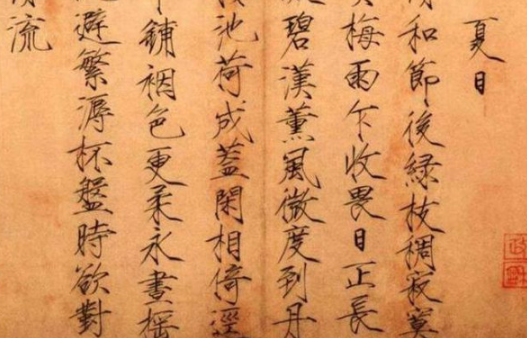 夏日
和節後綠枝稠寂寞
梅雨乍收畏日正長
碧漢薰風微度到丹
池荷成蓋閑相倚逕
鋪裀色更柔永晝搖
避繁溽杯盤時欲對
流